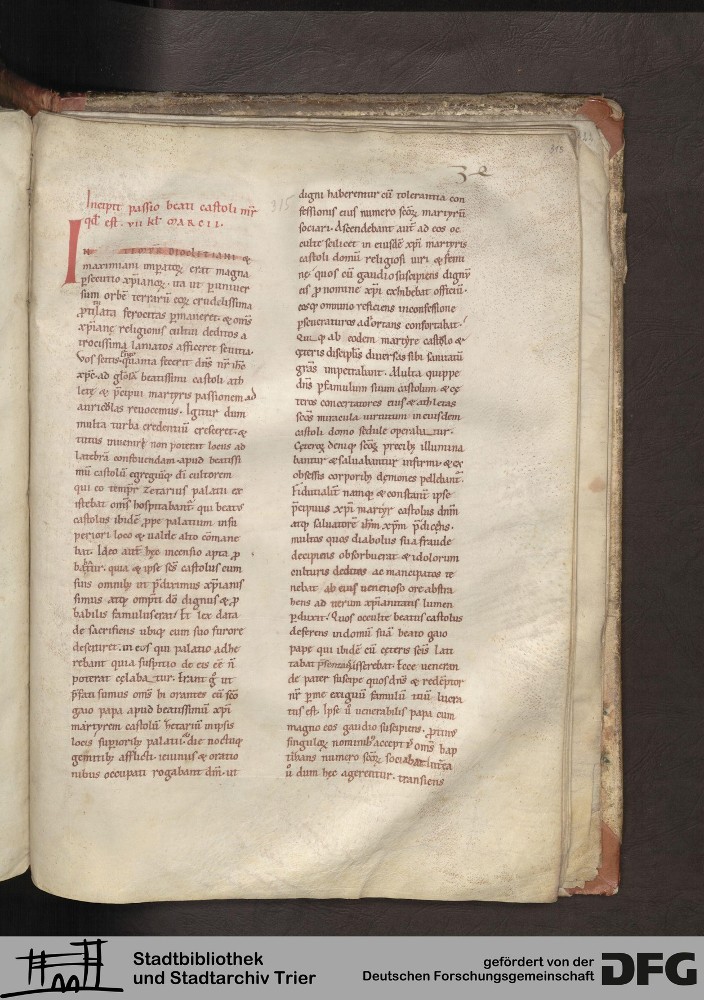 Incipit passio beati castoli mr̃
qđ est. vii kł marcii.
maximiani impatoꝝ erat magna
ꝑsecutio xp̃ianoꝝ. ita ut ꝑ univer
sum orbẽ terrarũ eoꝝ crudelissima
ferocitas ꝑmaneret. & om̃s
xp̃ianę religionis cultui deditos a
trocissima laniatos afficeret sentia.
fecerit dñs nr̃ ihc
xp̃c. ad gła beatissimi castoli ath
letę & p̃cipui martyris passionem ad
revocemus. Igitur dum
multa turba credentiũ cresceret. &
tutus invenire non poterit locus ad
latebrã confovendam. apud beatissi
mũ castolũ egregiũq; dĩ cultorem
qui eo tempr̃ zetarius palatii ex
istebat om̃s hospitabant. qui beatꝰ
castolus ibidẽ ꝓpe palatium insu
periori loco & valde alto com̃ane
bat. Ideo aut̃ hęc incensio apta ꝓ
bat̃ur. quia & ipse scs̃ castolus cum
suis omnibꝫ ut p̃diximus xp̃ianis
simus atq; omp̃ti dõ dignus & ꝓ
babilis famulus erat. Et lex data
de sacrificiis ubiq; cum suo furore
desęviret. in eos qui palatio adhe
rebant quia suspitio de eis eẽ ñ
poterat cęlaba_tur. Erant g̃ ut
p̃fati sumus om̃s hi orantes cũ scõ
gaio papa apud beatissimũ xp̃i
martyrem castolũ zetariũ inipsis
locis supioribꝫ palatii. die noctuq;
gemitibꝫ afflicti. ieiuniis & oratio
nibus occupati rogabant dm̃. ut
315
digni haberentur cũ tolerantia con
fessionis eius numero scõꝝ martyrũ
sociari. Ascendebant aut̃ ad eos oc
culte scilicet in eiusdẽ xp̃i martyris
castoli domũ religiosi viri & femi
nę. quos cũ gaudio suscipiens dignũ
eis ꝓ nomine xp̃i exhibebat officiũ.
eosq; omnino reficiens inconfessione
ꝑseveraturos adhortans confortabat.
Qui q; ab eodem martyre castolo &
cęteris discipłis diversas sibi sanitatũ
gr̃as impetrabant. Multa quippe
dñs ꝑ famulum suum castolum & cę
teros concertatores eius & athletas
scõs miracula virtutum in eiusdem
castoli domo sedule operaba_tur.
Cęteroꝝ deniq; scõꝝ precibꝫ illumina
bantur & salvabantur infirmi. & ex
obsessis corporibꝫ dęmones pelłbant.
Fidutialiť namq; & constanť ipse
p̃cipuus xp̃i martyr castolus dnm̃
atq; salvatorẽ ihm̃ xpm̃ p̃dicens.
multos quos diabolus sua fraude
decipiens obsorbuerat & idolorum
culturis deditos ac mancipatos te
nebat. ab eius venenoso ore abstra
hens ad verum xp̃ianitatis lumen
ꝑduxit. Quos occulte beatus castolus
deferens in domũ suã beato gaio
papę qui ibidẽ cũ cęteris scĩs lati
tabat p̃sentabat. Ecce veneran
de pater suscipe quos dñs & redẽptor
nr̃ ꝑ me exiguũ famulũ tuũ lucra
tus est. Ipse ũ venerabilis papa cum
magno eos gaudio suscipiens.
singuloꝝ nominibꝫ acceptis om̃s bap
tizans numero scõꝝ sociabat. Inter ea
ũ dum hęc agerentur. transiens
Stadtbibliothek
und Stadtarchiv Trier
gefördert von der
Deutschen Forschungsgemeinschaft
DFG